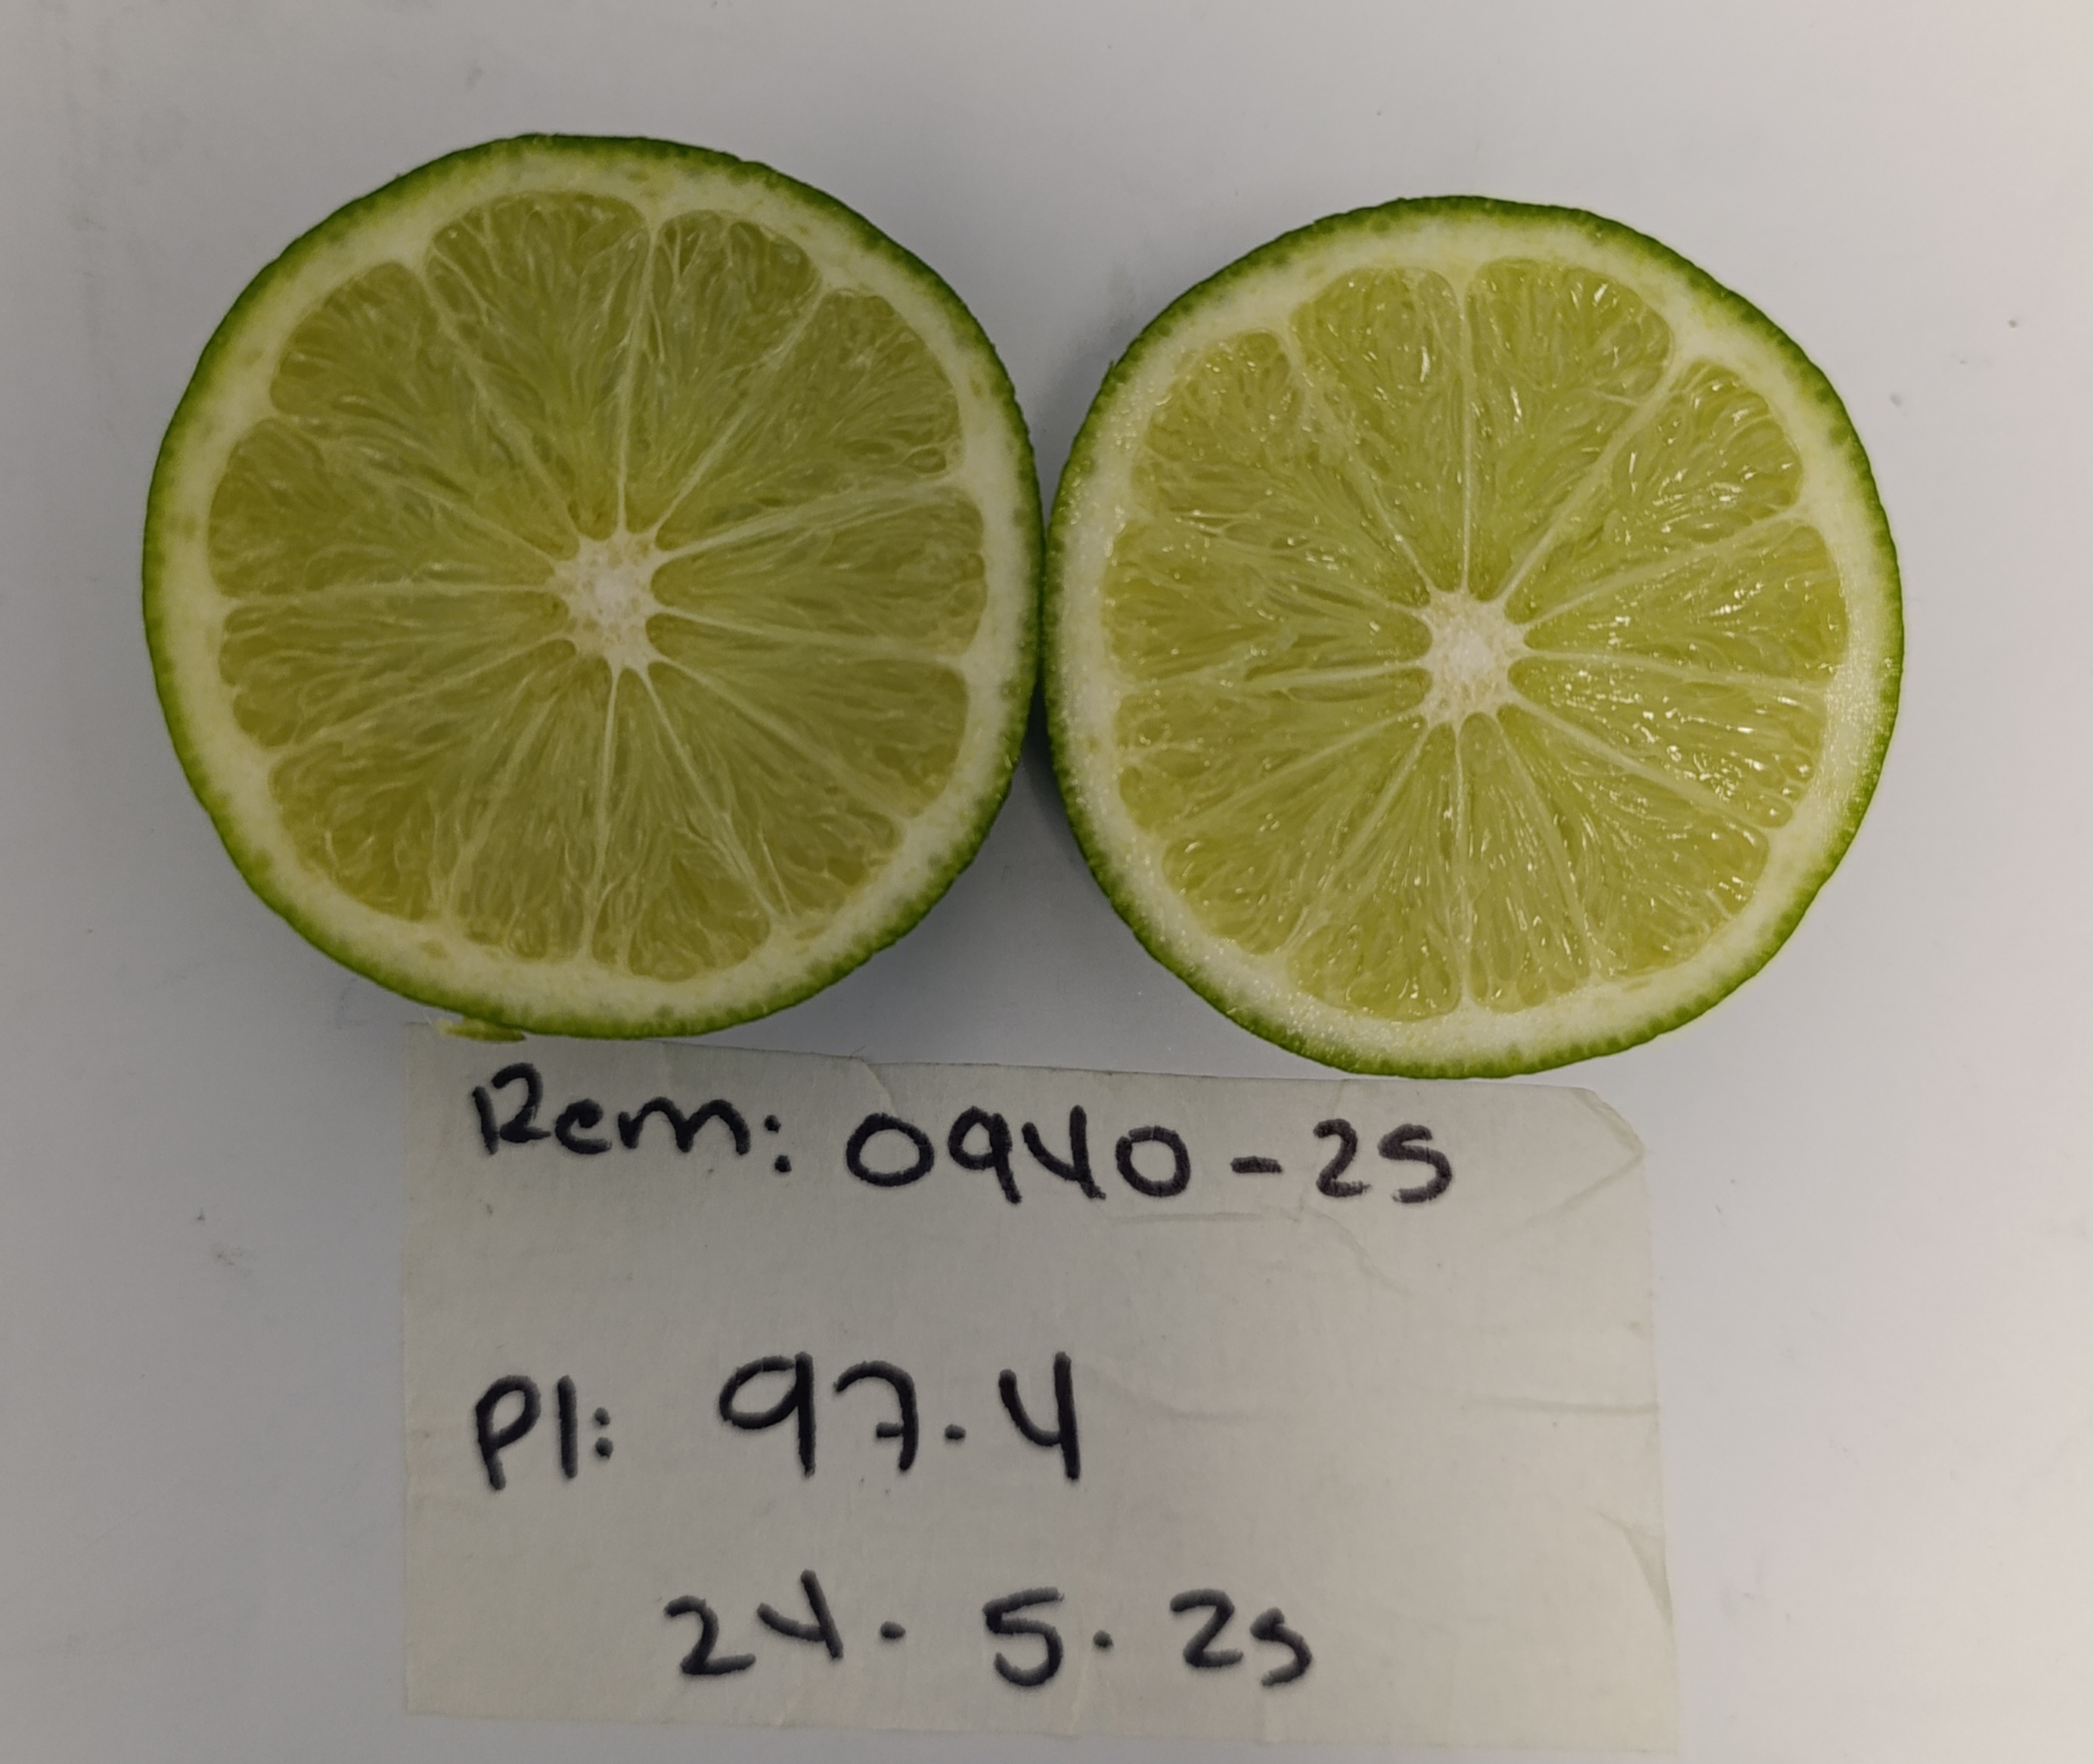 Rem: 0940-25
PI: 97.4
24.5.25